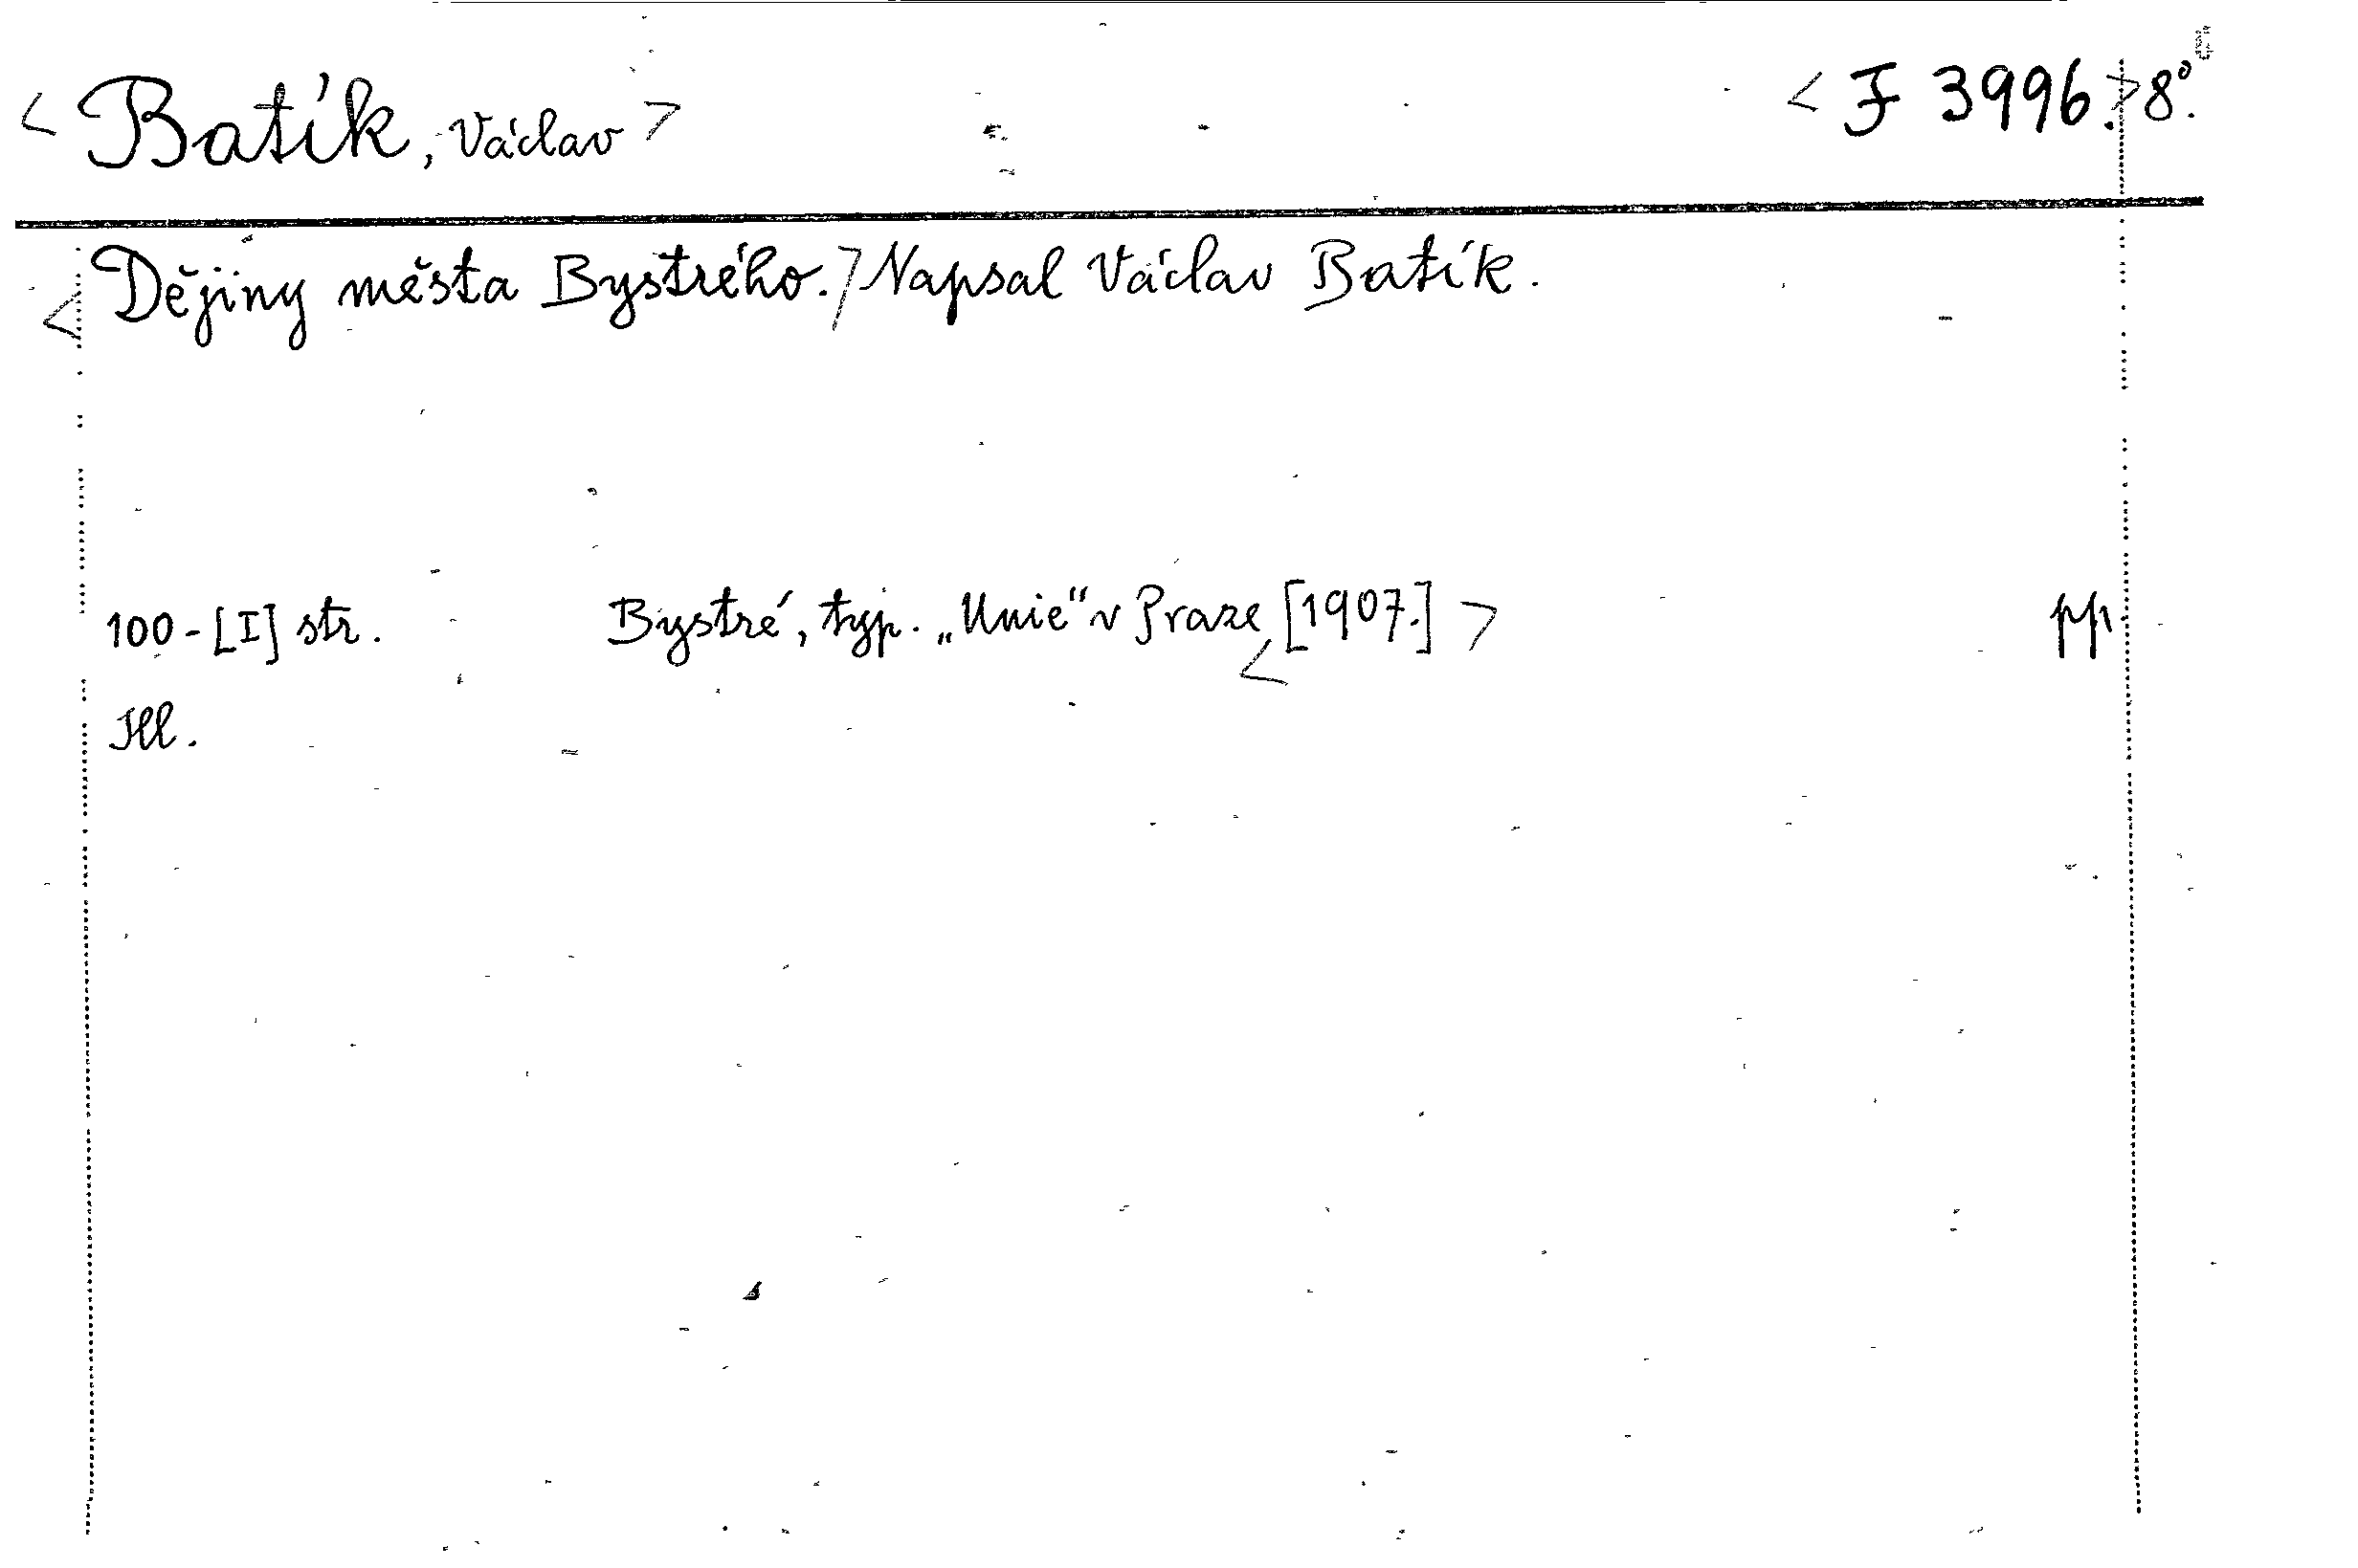 < Batík, Václav > < F 3996. > 8°.
< Dějiny města Bystrého. / Napsal Václav Batík.
100 - [I] str. Bystré, typ. „Unie“ v Praze < [1907.] > pp.
Ill.